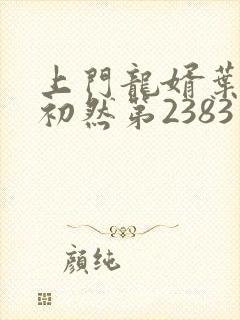 上門龍婿葉
初然第2383
顏純